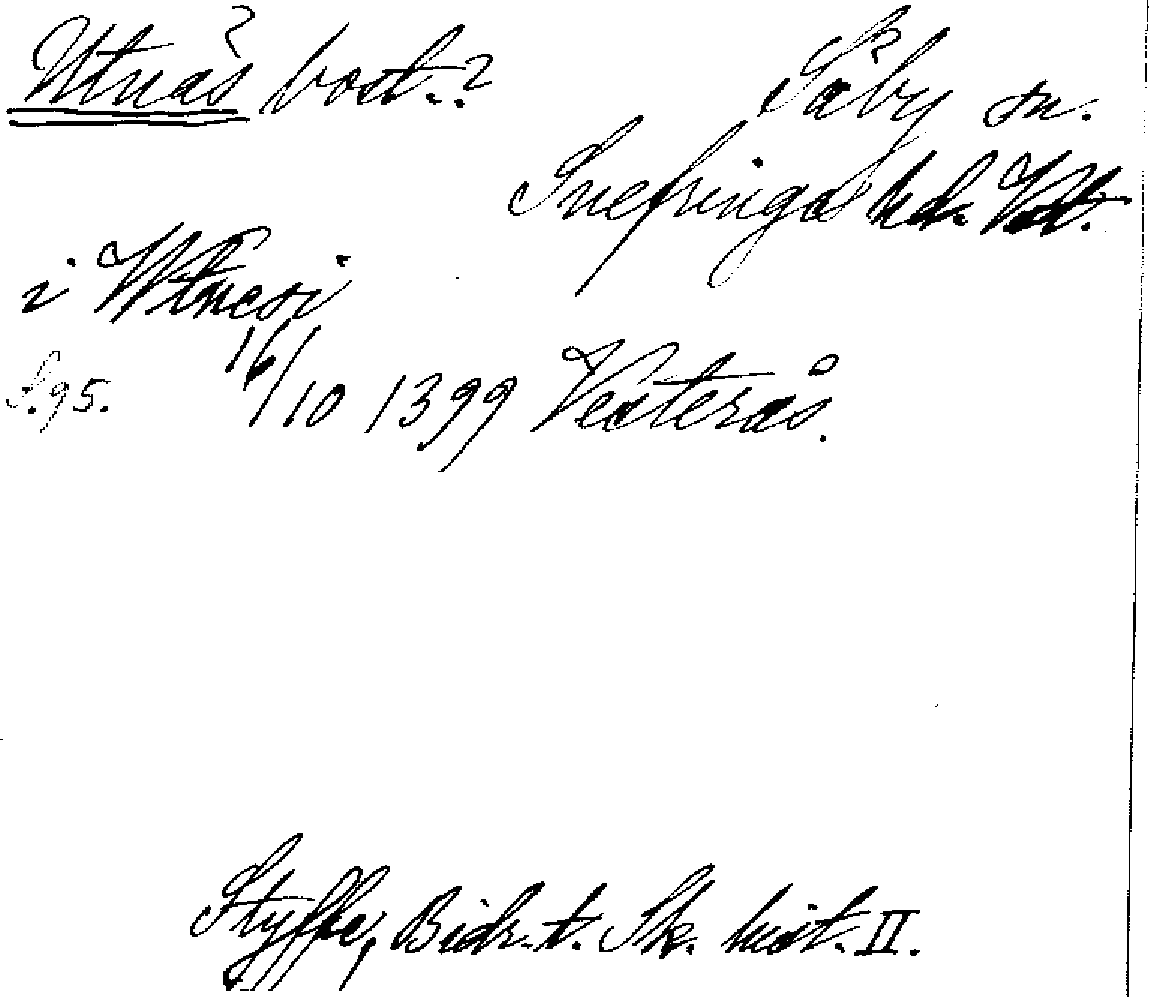 Utnäs bost.?
Säby sn.
Snefringa hd. Vstl.
i Wtnesi
S. 95. 16/10 1399 Vesterås.
Styffe, Bidr. t. Sk. hist. II.